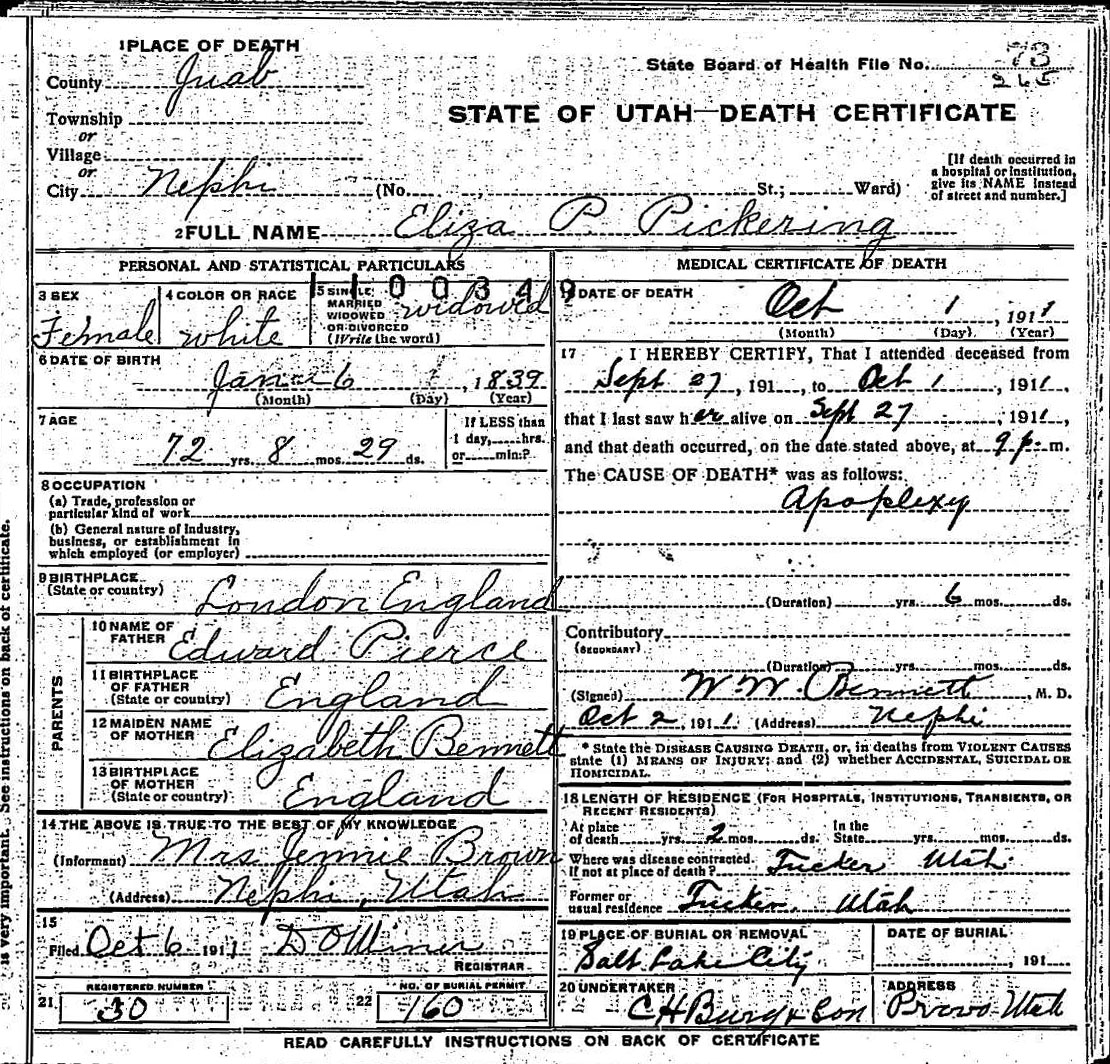 1 PLACE OF DEATH
County Juab
State Board of Health File No. 73
265
Township
or
Village
or
City Nephi (No. , St.; Ward)
STATE OF UTAH—DEATH CERTIFICATE
[If death occurred in
a hospital or institution,
give its NAME instead
of street and number.]
2 FULL NAME Eliza P. Pickering
PERSONAL AND STATISTICAL PARTICULARS
1100349
3 SEX
Female
4 COLOR OR RACE
white
5 SINGLE,
MARRIED
WIDOWED
OR DIVORCED
(Write the word)
widowed
6 DATE OF BIRTH
Jan 6, 1839
(Month) (Day) (Year)
7 AGE
72 yrs. 8 mos. 29 ds.
If LESS than
1 day, hrs.
or min.?
8 OCCUPATION
(a) Trade, profession or
particular kind of work
(b) General nature of Industry,
business, or establishment in
which employed (or employer)
9 BIRTHPLACE
(State or country)
London England
PARENTS
10 NAME OF
FATHER
Edward Pierce
11 BIRTHPLACE
OF FATHER
(State or country)
England
12 MAIDEN NAME
OF MOTHER
Elizabeth Bennett
13 BIRTHPLACE
OF MOTHER
(State or country)
England
14 THE ABOVE IS TRUE TO THE BEST OF MY KNOWLEDGE
(Informant) Mrs Jennie Brown
(Address) Nephi, Utah
15
Filed Oct 6 1911
REGISTRAR
21 REGISTERED NUMBER
30
22 NO. OF BURIAL PERMIT
160
MEDICAL CERTIFICATE OF DEATH
DATE OF DEATH
Oct 1, 1911
(Month) (Day) (Year)
17 I HEREBY CERTIFY, That I attended deceased from
Sept 27, 191 , to Oct 1, 1911,
that I last saw her alive on Sept 27, 1911,
and that death occurred, on the date stated above, at 9 p. m.
The CAUSE OF DEATH* was as follows:
Apoplexy
(Duration) yrs. 6 mos. ds.
Contributory
(SECONDARY)
(Duration) yrs. mos. ds.
(Signed) W. W. Bennett, M. D.
Oct 2, 1911 (Address) Nephi
* State the DISEASE CAUSING DEATH, or, in deaths from VIOLENT CAUSES
state (1) MEANS OF INJURY; and (2) whether ACCIDENTAL, SUICIDAL OR
HOMICIDAL.
18 LENGTH OF RESIDENCE (FOR HOSPITALS, INSTITUTIONS, TRANSIENTS, OR
RECENT RESIDENTS)
At place
of death yrs. 2 mos. ds.
In the
State yrs. mos. ds.
Where was disease contracted.
If not at place of death? Tucker Utah
Former or
usual residence Tucker, Utah
19 PLACE OF BURIAL OR REMOVAL
Salt Lake City
DATE OF BURIAL
, 191
20 UNDERTAKER
C H Burg & Son
ADDRESS
Provo Utah
READ CAREFULLY INSTRUCTIONS ON BACK OF CERTIFICATE
is very important. See instructions on back of certificate.